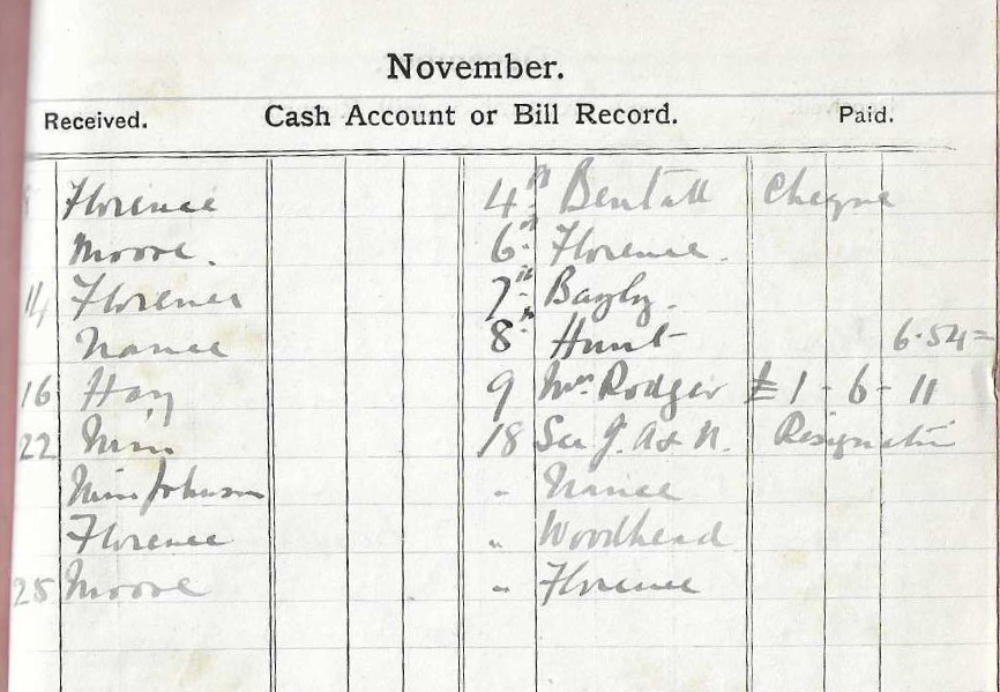 November.
Received. Cash Account or Bill Record. Paid.
Florence 4th Bentall Cheque
Moore. 6th Florence.
14 Florence 7th Bayly.
Nance 8th Hunt 6.54=
16 Hay 9 Mrs. Rodger £1-6-11
22 18 Sec J. A & N. Resignation
Miss Johnson " Nance
Florence " Woodhead
25 Moore " Florence